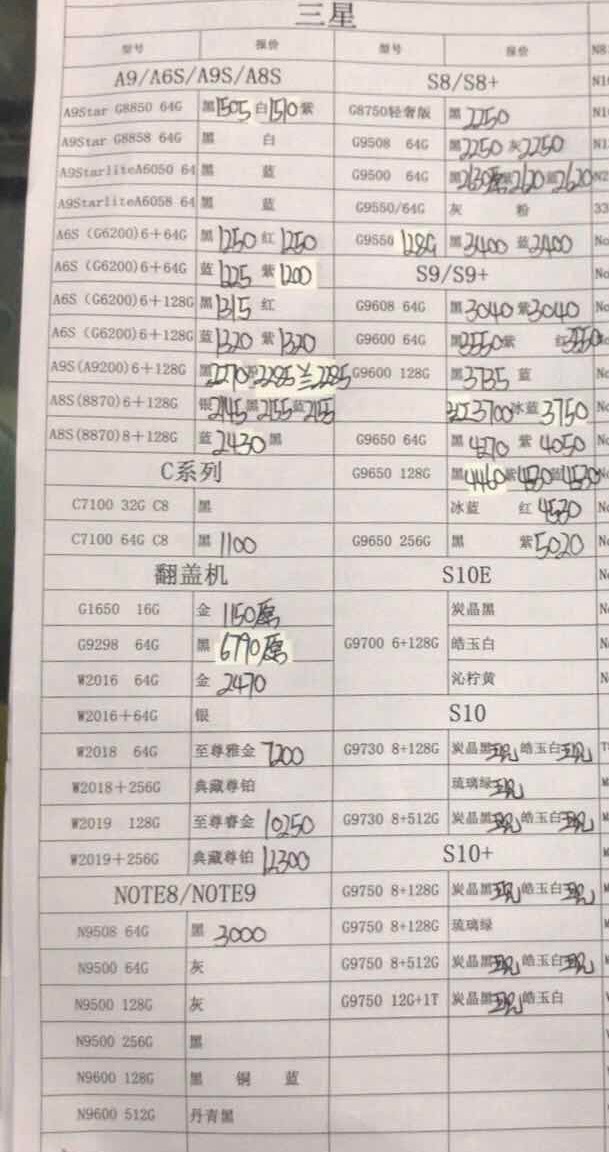 三星
型号 报价 型号 报价
A9/A6S/A9S/A8S
A9Star G8850 64G 黑1505 白1510 紫
A9Star G8858 64G 黑 白
A9StarliteA6050 64 黑 蓝
A9StarliteA6058 64 黑 蓝
A6S (G6200)6+64G 黑1250 红1250
A6S (G6200)6+64G 蓝1225 紫1200
A6S (G6200)6+128G 黑1315 红
A6S (G6200)6+128G 蓝1320 紫1320
A9S(A9200)6+128G 黑2270 2285 兰2285
A8S(8870)6+128G 银2145 黑2155 蓝2155
A8S(8870)8+128G 蓝2430 黑
C系列
C7100 32G C8 黑
C7100 64G C8 黑1100
翻盖机
G1650 16G 金 1150原
G9298 64G 黑 6790原
W2016 64G 金 2470
W2016+64G 银
W2018 64G 至尊雅金 7200
W2018+256G 典藏尊铂
W2019 128G 至尊睿金 10250
W2019+256G 典藏尊铂 12300
NOTE8/NOTE9
N9508 64G 黑 3000
N9500 64G 灰
N9500 128G 灰
N9500 256G 黑
N9600 128G 黑 铜 蓝
N9600 512G 丹青黑
S8/S8+
G8750轻奢版 黑 2250
G9508 64G 黑2250 灰2250
G9500 64G 黑2630原 紫2620 蓝2620
G9550/64G 灰 粉
G9550 128G 黑3400 蓝3400
S9/S9+
G9608 64G 黑3040 紫3040
G9600 64G 黑3550 紫 红3550
G9600 128G 黑3735 蓝
3700 冰蓝3750
G9650 64G 黑4270 紫4050
G9650 128G 黑4460 紫4530 蓝4530
冰蓝 红4530
G9650 256G 黑 紫5020
S10E
炭晶黑
G9700 6+128G 皓玉白
沁柠黄
S10
G9730 8+128G 炭晶黑现 皓玉白现
琉璃绿现
G9730 8+512G 炭晶黑现 皓玉白现
S10+
G9750 8+128G 炭晶黑现 皓玉白现
G9750 8+128G 琉璃绿
G9750 8+512G 炭晶黑现 皓玉白现
G9750 12G+1T 炭晶黑现 皓玉白